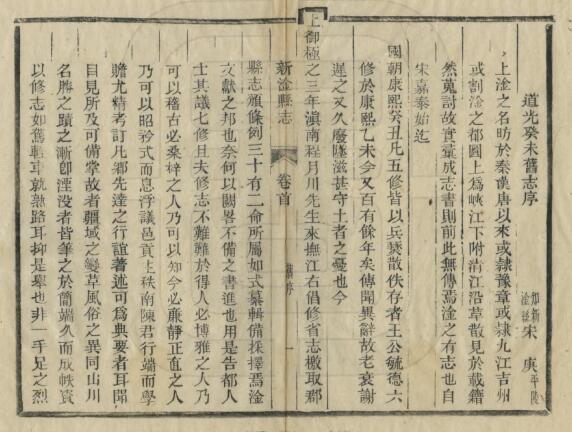 道光癸未舊志序
知新淦縣 宋 庚 平陵
上淦之名昉於秦漢唐以來或隸豫章或隸九江吉州
或割淦之都圖上爲峽江下附清江沿革散見於載籍
然蒐討故實彙成志書則前此無傳焉淦之有志也自
宋嘉泰始迄
國朝康熙癸丑凡五修皆以兵燹散佚存者王公毓德六
修於康熙乙未今又百有餘年矣傳聞異辭故老衰謝
遲之又久廢墜滋甚守土者之憂也今
上御極之三年滇南程月川先生來撫江右倡修省志檄取郡
新淦縣志 卷首 舊序 一
縣志頒條例三十有二俞所屬如式纂輯備採擇焉淦
文獻之邦也奈何以闕畧不備之書進也用是告都人
士其議七修且夫修志不難難於得人必博雅之人乃
可以稽古必桑梓之人乃可以知今必廉靜正直之人
乃可以昭矜式而息浮議邑貢上秩南陳君行端而學
贍尤精考訂凡鄉先達之行誼著述可爲典要者耳聞
目見所及可備掌故者疆域之變革風俗之異同山川
名勝之蹟之漸卽湮没者皆筆之於簡端久而成帙寰
以修志如舊輕車就熟路耳抑是舉也非一手足之烈